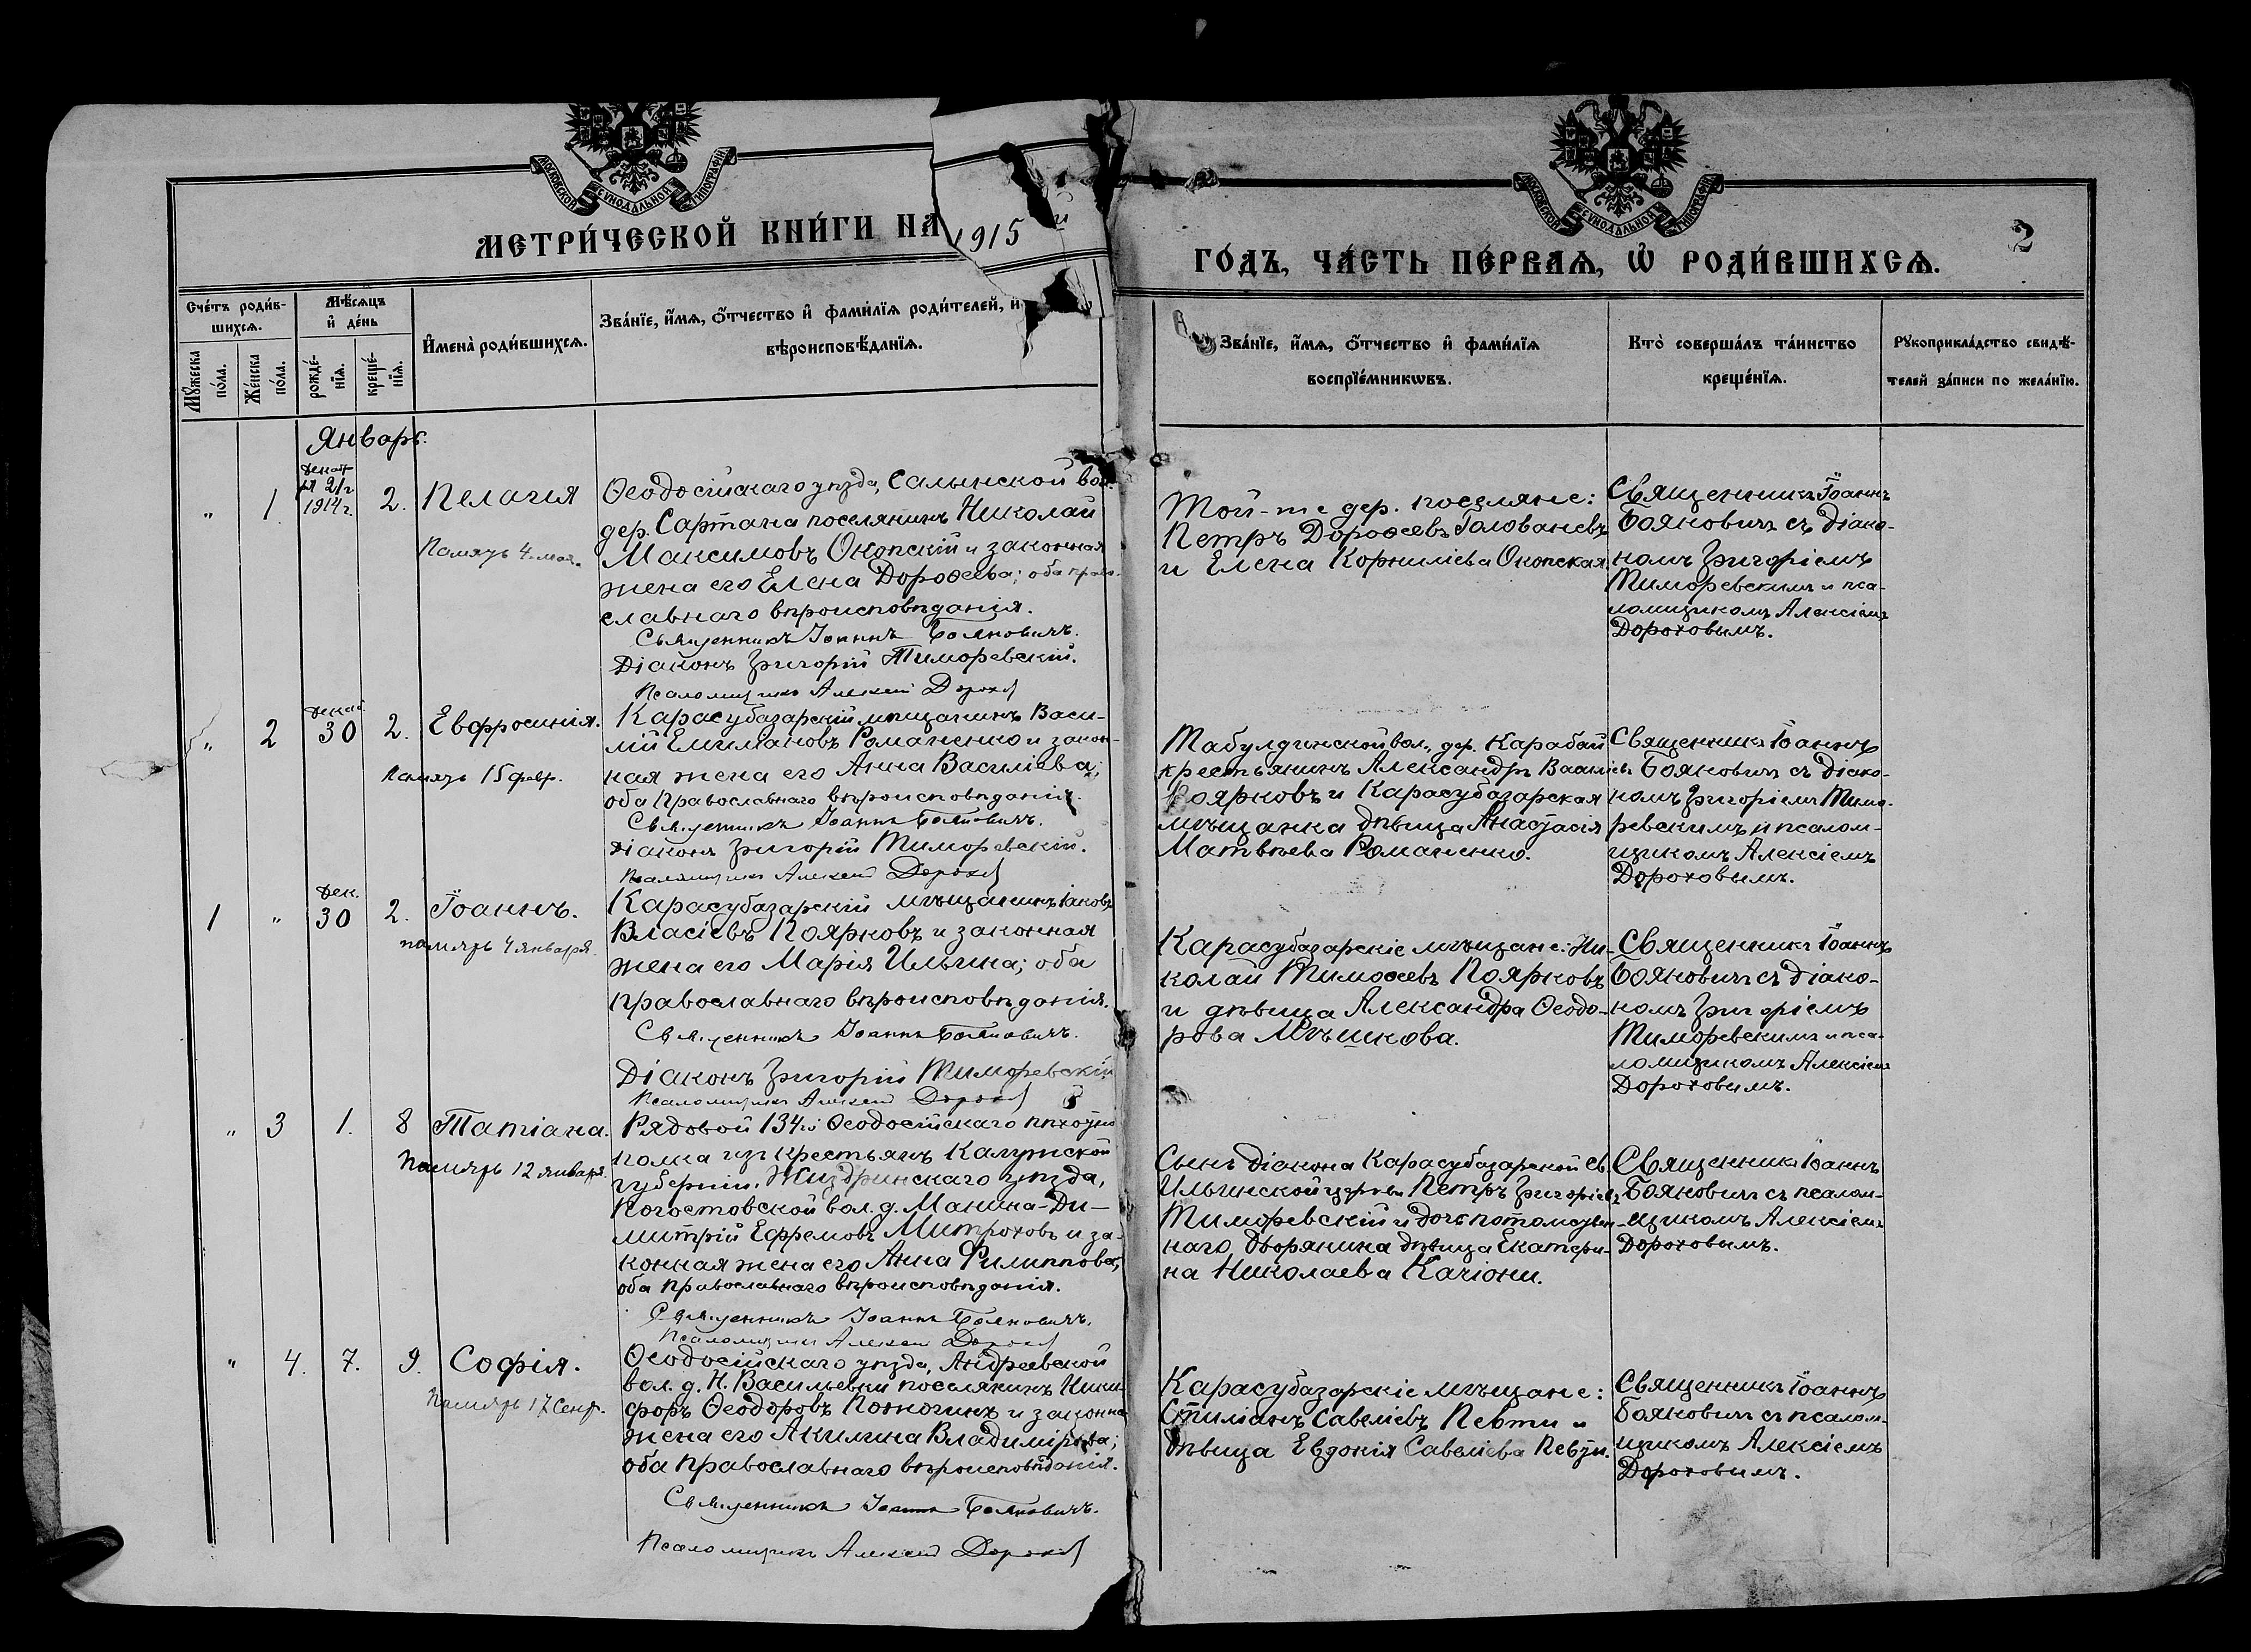 МОСКОВСКОЙ СѴНОДАЛЬНОЙ ТИПОГРАФІИ
МОСКОВСКОЙ СѴНОДАЛЬНОЙ ТИПОГРАФІИ
2
МЕТРИ́ЧЕСКОЙ КНИ́ГИ НА 1915 й
ГО́ДЪ, ЧА́СТЬ ПЕ́РВАѦ, Ѡ҆ РОДИ́ВШИХСѦ.
Сче́тъ роди́в-
шихсѧ.
Мѣ́сѧцъ
и҆ де́нь
Мꙋ́жеска
по́ла.
Же́нска
по́ла.
рожде́-
нїѧ.
креще́-
нїѧ.
И҆мена̀ роди́вшихсѧ.
Зва́нїе, и҆́мѧ, ѻ҆́тчество и҆ фами́лїѧ роди́телей, и҆
вѣроисповѣ́данїѧ.
Зва́нїе, и҆́мѧ, ѻ҆́тчество и҆ фами́лїѧ
воспрїе́мникѡвъ.
Кто̀ соверша́лъ та́инство
креще́нїѧ.
Рꙋкоприкла́дство свидѣ́-
телей за́писи по жела́нїю.
Январь.
" 1. декаб-
ря 21 г.
1914 г. 2. Пелагия
Память 4 мая.
Ѳеодосійскаго уѣзда, Салынской вол.
дер. Сартана поселянинъ Николай
Максимовъ Окопскій и законная
жена его Елена Дороѳеева; оба право-
славнаго вѣроисповѣданія.
Священникъ Іоаннъ Бояновичъ.
Діаконъ Григорій Тиморевскій.
Псаломщикъ Алексей Дорохов
Той-же дер. поселяне:
Петръ Дороѳеевъ Голованевъ
и Елена Корниліева Окопская.
Священникъ Іоаннъ
Бояновичъ съ діако-
номъ Григоріемъ
Тиморевскимъ и пса-
ломщикомъ Алексіемъ
Дороховымъ.
" 2 декаб. 30 2. Евфросинія.
Память 15 февр.
Карасубазарскій мѣщанинъ Васи-
лій Романенко и закон-
ная жена его Анна Василіева;
оба православнаго вѣроисповѣданія.
Священникъ Іоаннъ Бояновичъ.
Діаконъ Григорій Тиморевскій.
Псаломщикъ Алексей Дорохов
Табулдинской вол., дер. Карабай
крестьянинъ Александръ
Поярковъ и Карасубазарская
мѣщанка дѣвица Анастасія
Матвѣева Романенко.
Священникъ Іоаннъ
Бояновичъ съ діако-
номъ Григоріемъ Тимо-
ревскимъ и псалом-
щикомъ Алексіемъ
Дороховымъ.
1 " Дек. 30 2. Іоаннъ.
память 4 января.
Карасубазарскій мѣщанинъ Іаковъ
Власіевъ Поярковъ и законная
жена его Марія Ильина; оба
православнаго вѣроисповѣданія.
Священникъ Іоаннъ Бояновичъ.
Діаконъ Григорій Тиморевскій
Псаломщикъ Алексей Дорохов
Карасубазарскіе мѣщане: Ни-
колай Тимоѳеевъ Поярковъ
и дѣвица Александра Ѳеодо-
рова Мѣшкова.
Священникъ Іоаннъ
Бояновичъ съ діако-
номъ Григоріемъ
Тиморевскимъ и пса-
ломщикомъ Алексіемъ
Дороховымъ.
" 3 1. 8 Татіана.
Память 12 января.
Рядовой 134го Ѳеодосійскаго пѣхотнаго
полка изъ крестьянъ Калужской
губерніи, Жиздринскаго уѣзда,
Погостовской вол. д. Манина - Ди-
митрій Ефремовъ Митроховъ и за-
конная жена его Анна Филиппова;
оба православнаго вѣроисповѣданія.
Священникъ Іоаннъ Бояновичъ.
Псаломщикъ Алексей Дорохов
Сынъ діакона Карасубазарской Св.
Ильинской церкви Петръ Григоріевъ
Тиморевскій и дочь потомствен-
наго дворянина дѣвица Екатери-
на Николаева Качіони.
Священникъ Іоаннъ
Бояновичъ съ псалом-
щикомъ Алексіемъ
Дороховымъ.
" 4. 7. 9. Софія.
Память 17 Сент.
Ѳеодосійскаго уѣзда, Андреевской
вол. д. Н. Васильевки поселянинъ Ники-
форъ Ѳеодоровъ и законная
жена его Акилина Владимірова;
оба православнаго вѣроисповѣданія.
Священникъ Іоаннъ Бояновичъ.
Псаломщикъ Алексей Дорохов
Карасубазарскіе мѣщане:
Стиліанъ Савеліевъ Певти и
дѣвица Евдокія Савеліева Певти.
Священникъ Іоаннъ
Бояновичъ съ псалом-
щикомъ Алексіемъ
Дороховымъ.